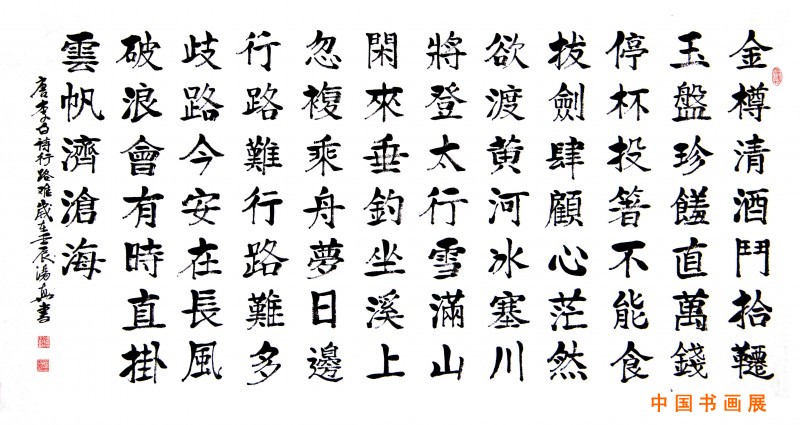 金樽清酒鬥拾韆
玉盤珍饈直萬錢
停杯投箸不能食
拔劍肆顧心茫然
欲渡黄河冰塞川
將登太行雪滿山
閑來垂釣坐溪上
忽複乘舟夢日邊
行路難行路難多
歧路今安在長風
破浪會有時直掛
雲帆濟滄海
唐李白詩行路难歲在壬辰湯書
中国书画展